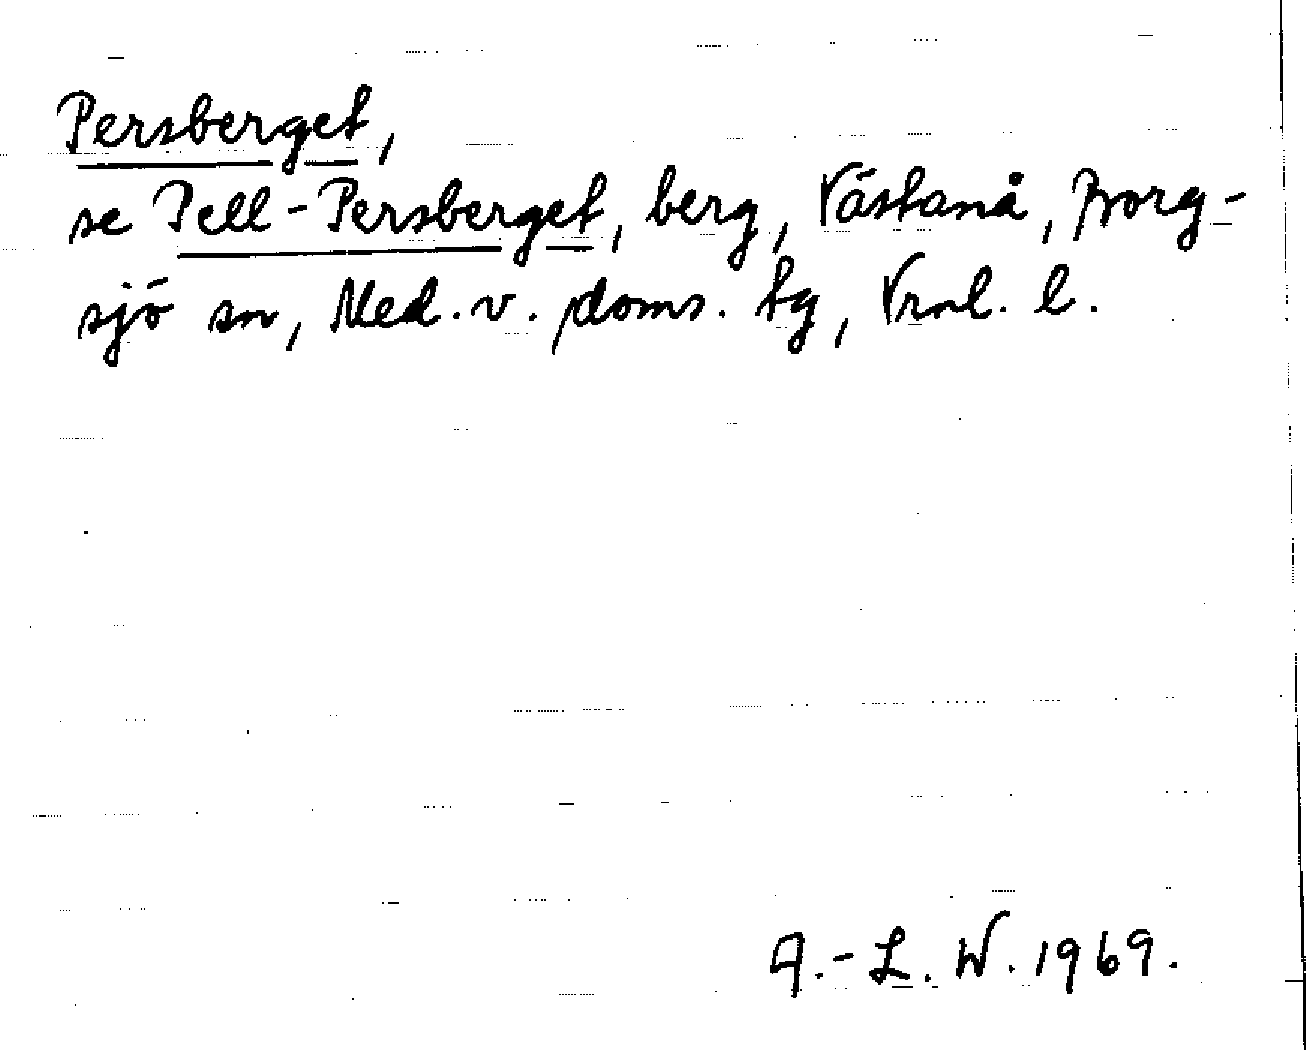 Persberget,
se Pell-Persberget, berg, Västanå, Borg-
sjö sn, Med. v. doms. tg, Vrnl. l.
A.-L. W. 1969.